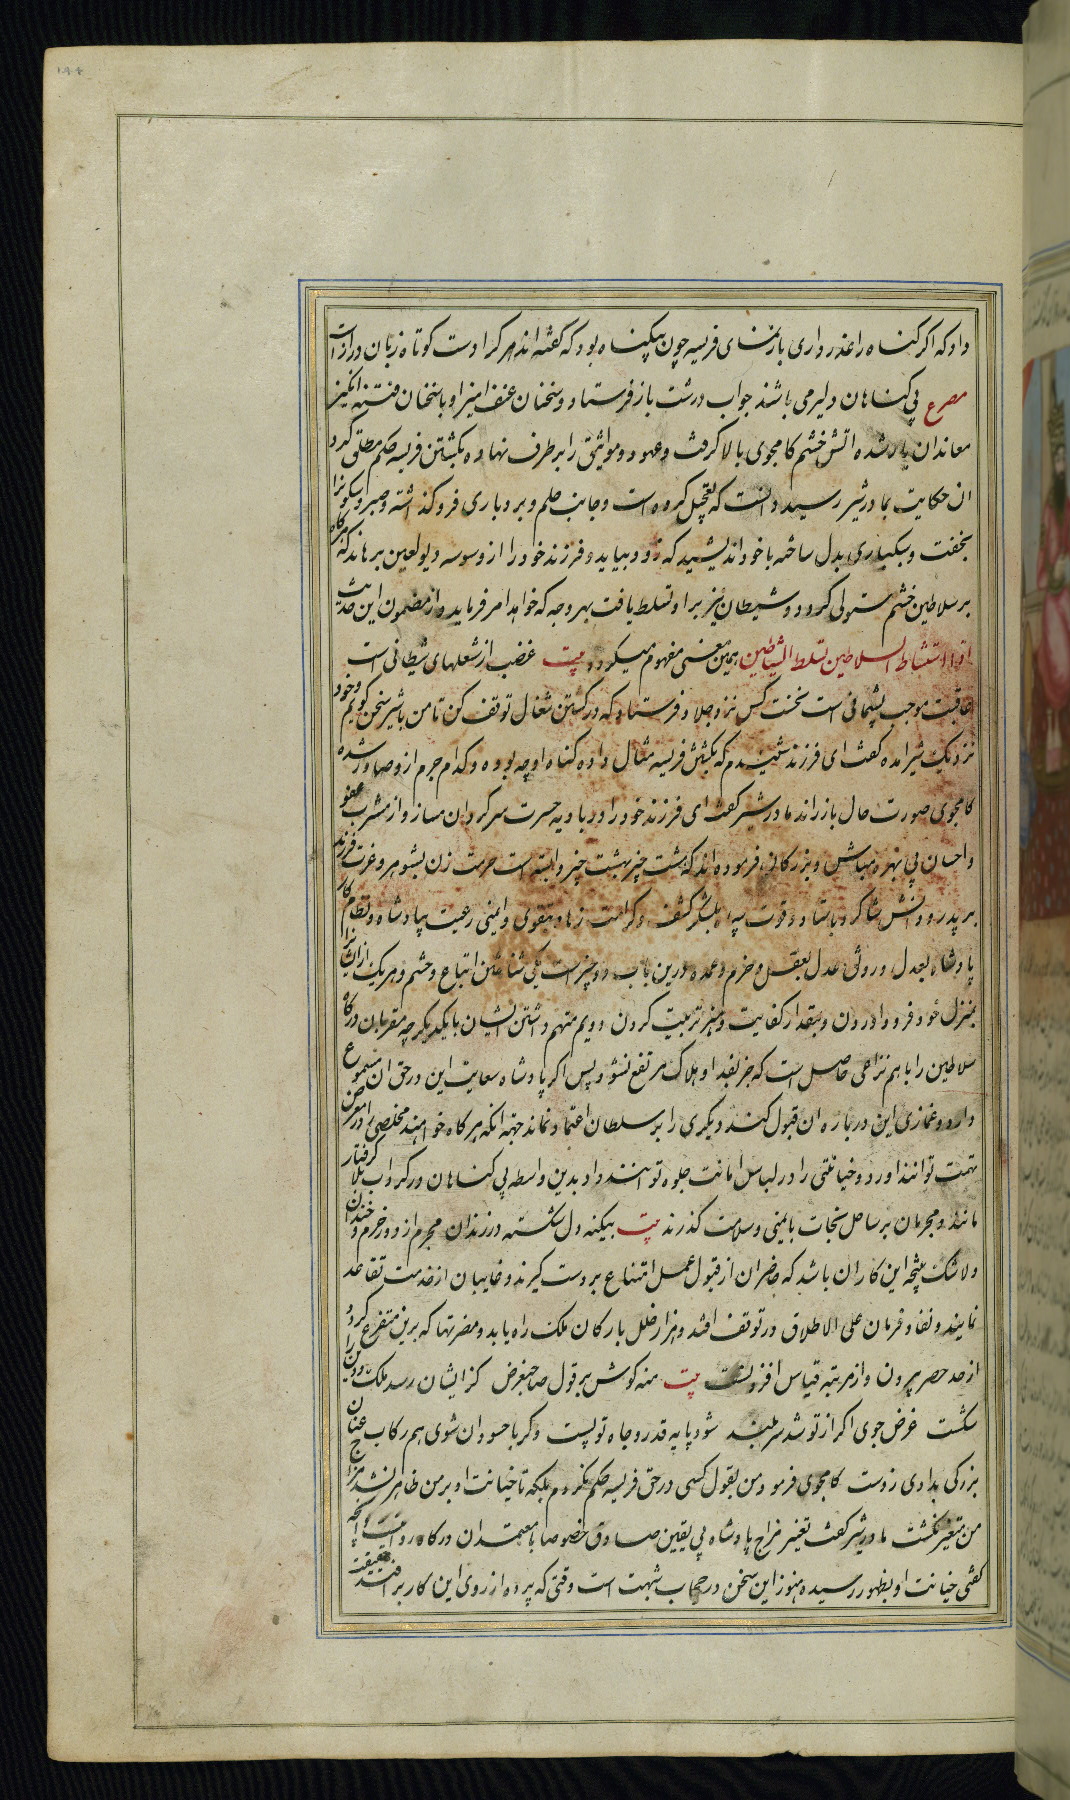 داد که اگر گناه را عذر داری بازنمای فریسه چون بیگناه بود که گفته‌اند هر کرا دست کوتاه زبان دراز است
مصرع بی گناهان دلیر می باشند جواب درشت باز فرستاد و سخنان عنف امیز او با سخنان فتنه انگیز
معاندان یار شده اتش خشم کامجوی بالا گرفت و عهود و مواثیق را بر طرف نهاده بکشتن فریسه حکم مطلق کرد
ان حکایت بمادر شیر رسید دانست که تعجیل کرده است و جانب حلم و بردباری فروگذاشته و صبر و سکون را
بخفت و سبکساری بدل ساخته با خود اندیشید که زود بباید و فرزند خود را از وسوسه دیو لعین برهاند که هرگاه
بر سلاطین خشم مستولی گردد و شیطان نیز بر او تسلط یافت بهر وجه که خواهد امر فرماید و از مضمون این حدیث
اذا استشاط السلاطین تسلط الشیاطین همین معنی مفهوم میگردد بیت غضب از شعلهای شیطانی است
عاقبت موجب پشیمانی است نخست کس نزد جلاد فرستاد که در کشتن شغال توقف کن تا من با شیر سخن گویم و خود
نزدیک شیر امده گفت ای فرزند شنیدم که بکشتن فریسه مثال داده گناه او چه بوده و کدام جرم از و صادر شده
کامجوی صورت حال باز راند مادر شیر گفت ای فرزند خود را در بادیه حسرت سرگردان مساز و از مشرب عفو
و احسان بی بهره مباش و بزرکان فرموده‌اند که هشت چیز بهشت چیز وابسته است حرمت زن بشوهر و عزت فرزند
بر پدر و دانش شاگرد باستاد و قوت سپاه بلشگرکش و کرامت زهاد بتقوی و ایمنی رعیت بپادشاه و نظام کار
پادشاه بعدل و رونق عدل بعقل و حزم و عمده درین باب دو چیزست یکی شناختن اتباع و حشم و هر یک از ایشان را
بمنزل خود فرود اوردن و بمقدار کفایت و هنر تربیت کردن دویم متهم داشتن ایشان با یکدیگر چه مقربان درگاه
سلاطین را با هم نزاعی حاصل است که جز بفقد او هلاک مرتفع نشود پس اگر پادشاه سعایت این در حق ان مسموع
دارد و غمازی این در باره ان قبول کند دیگری را بر سلطان اعتماد نماند جهة انکه هر گاه خواهند مخلصی را در معرض
تهمت توانند اورد و خیانتی را در لباس امانت جلوه توانند داد بدین واسطه بی گناهان در گرداب بلا گرفتار
مانند و مجرمان بر ساحل نجات بایمنی و سلامت گذرند بیت بیگنه دل شکسته در زندان مجرم از دور خرم و خندان
و لاشک نتیجه این کار ان باشد که حاضران از قبول عمل امتناع بر دست گیرند و غایبان از خدمت تقاعد
نمایند و نفاذ فرمان علی الاطلاق در توقف افتد و هزار خلل بارکان ملک راه یابد و مضرتها که برین متفرع گردد
از حد حصر بیرون و از مرتبه قیاس افزونست بیت منه گوش بر قول صاحبغرض کزایشان رسد ملک و دین را
شکست غرض جوی اگر از تو شد سر بلند شود پایه قدر و جاه تو پست و گر با حسودان شوی هم رکاب عنان
بزرگی بدادی ز دست کامجوی فرمود من بقول کسی در حق فریسه حکم نکردم بلکه تا خیانت او بر من ظاهر نشد مزاج
من متغیر نگشت مادر شیر گفت تغییر مزاج پادشاه بی یقین صادق خصوصا با معتمدان درگاه روا نیست و انچه
گفتی خیانت او بظهور رسیده هنوز این سخن در حجاب شبهت است وقتی که پرده از روی این کار برافتد حقیقت